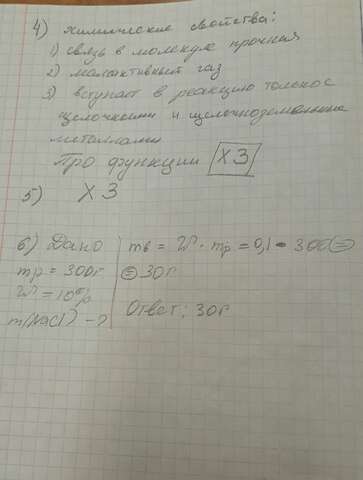 4) химические свойства:
1) связь в молекуле прочная
2) малоактивный газ
3) вступает в реакцию только с
щелочными и щелочноземельными
металлами
Про функции ХЗ
5) ХЗ
6) Дано
mр = 300г
W = 10%
m(NaCl) - ?
mв = W · mр = 0,1 · 300 =
= 30г
Ответ: 30г